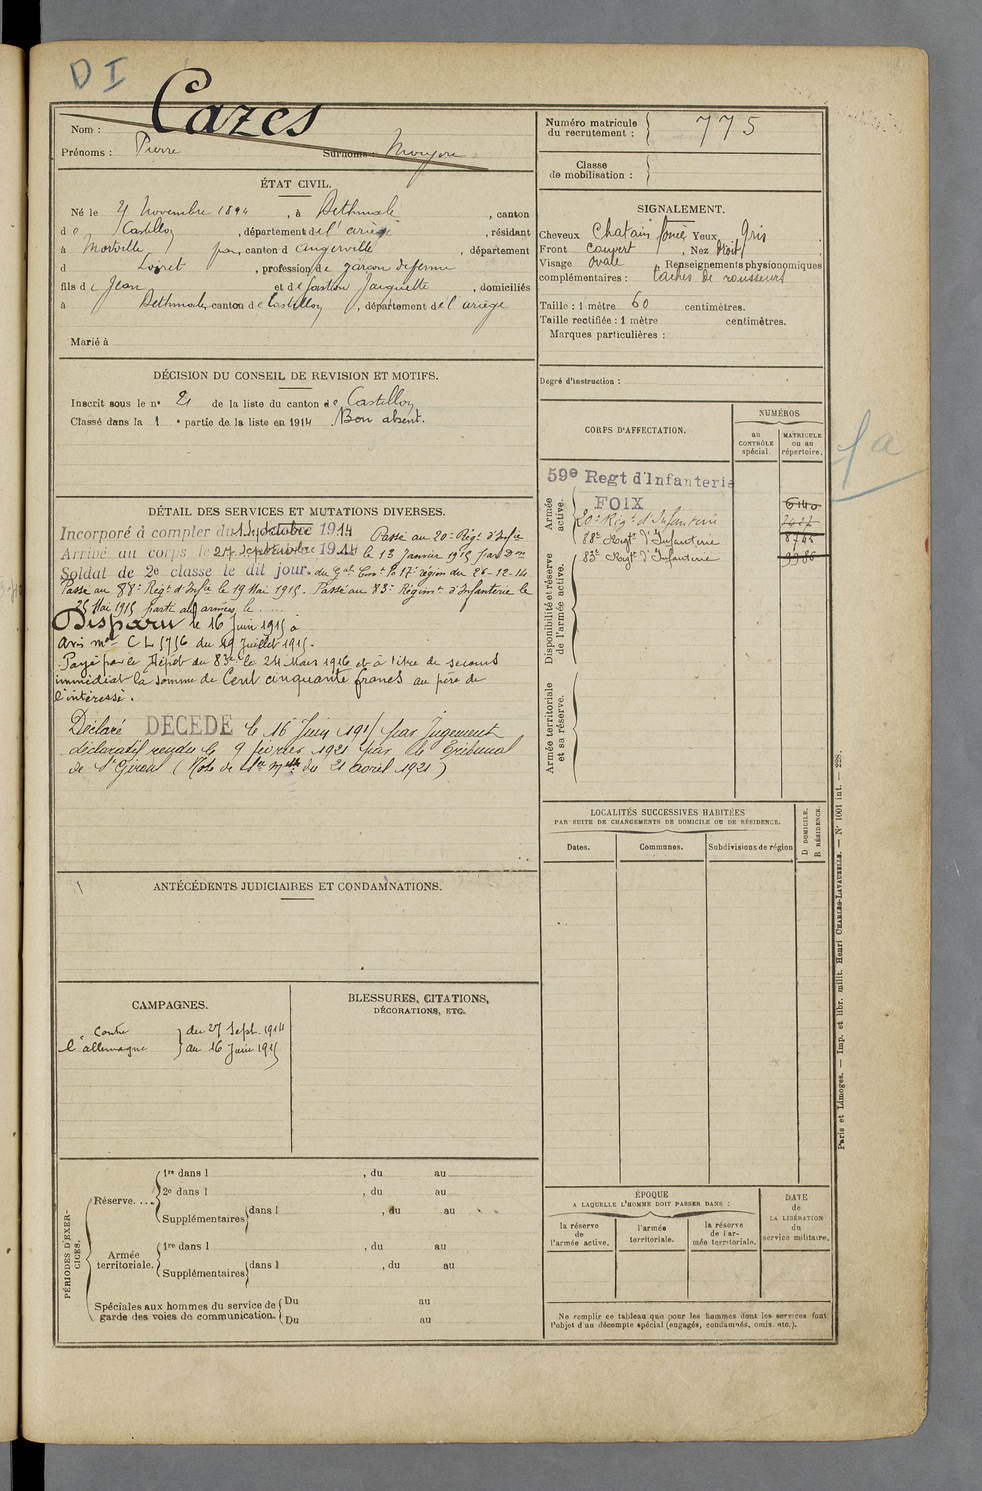 D I
Nom : Cazes
Prénoms : Pierre Surnoms :
Numéro matricule du recrutement : 775
Classe de mobilisation :
ÉTAT CIVIL.
Né le 4 Novembre 1894, à Bethmale, canton
de Castillon, département de l'ariège, résidant
à Morville, canton d'angerville, département
d Loiret, profession de garçon de ferme
fils de Jean et de Jacquette, domiciliés
à Bethmale, canton de Castillon, département de l'ariège
Marié à
SIGNALEMENT.
Cheveux Chatain foncé Yeux gris
Front couvert, Nez Droit
Visage ovale, Renseignements physionomiques
complémentaires : Taches de rousseurs
Taille : 1 mètre 60 centimètres.
Taille rectifiée : 1 mètre centimètres.
Marques particulières :
DÉCISION DU CONSEIL DE REVISION ET MOTIFS.
Inscrit sous le n° 21 de la liste du canton de Castillon
Classé dans la 1e partie de la liste en 1914. Bon absent.
Degré d'instruction :
CORPS D'AFFECTATION.
NUMÉROS
au CONTRÔLE spécial.
MATRICULE ou au répertoire.
Armée active.
59e Regt d'Infanterie
FOIX 6140
20e Régt d'Infanterie
88e Regt d'Infanterie 8745
83e Regt d'Infanterie
Disponibilité et réserve de l'armée active.
Armée territoriale et sa réserve.
1a
DÉTAIL DES SERVICES ET MUTATIONS DIVERSES.
Incorporé à compter du octobre 1914 Passé au 20e Régt d'Infie
Arrivé au corps le 27 septembre 1914 le 13 Janvier 1915 par Don
Soldat de 2e classe le dit jour. du Gal Comt la 17e région du 26-12-14
Passé au 88e Régt d'Infie le 19 Mai 1915. Passé au 83e Régiment d'Infanterie le
25 Mai 1915 parti aux armées le ....
Disparu le 16 Juin 1915 à
Avis mel CL 5756 du 19 Juillet 1915.
Payé par le Dépôt du 83e le 24 Mars 1916 et à titre de secours
immédiat la somme de Cent cinquante francs au père de
l'intéressé.
Déclaré DÉCÉDÉ le 16 Juin 1915 par Jugement
déclaratif rendu le 9 février 1921 par le Tribunal
de St Girons (Note de du 21 avril 1921)
LOCALITÉS SUCCESSIVES HABITÉES
PAR SUITE DE CHANGEMENTS DE DOMICILE OU DE RÉSIDENCE.
Dates. Communes. Subdivisions de région
D DOMICILE.
R RÉSIDENCE.
ANTÉCÉDENTS JUDICIAIRES ET CONDAMNATIONS.
CAMPAGNES.
Contre } du 27 Sept. 1914
l'allemagne } au 16 Juin 1915
BLESSURES, CITATIONS,
DÉCORATIONS, ETC.
PÉRIODES D'EXERCICES.
Réserve....
1re dans l , du au
2e dans l , du au
Supplémentaires dans l , du au
Armée territoriale.
1re dans l , du au
Supplémentaires dans l , du au
Spéciales aux hommes du service de garde des voies de communication.
Du au
Du au
ÉPOQUE
A LAQUELLE L'HOMME DOIT PASSER DANS :
la réserve de l'armée active.
l'armée territoriale.
la réserve de l'armée territoriale.
DATE de LA LIBÉRATION du service militaire.
Ne remplir ce tableau que pour les hommes dont les services font
l'objet d'un décompte spécial (engagés, condamnés, omis, etc.).
Paris et Limoges. — Imp. et libr. milit. Henri CHARLES-LAVAUZELLE. — N° 1001 int. — 228.